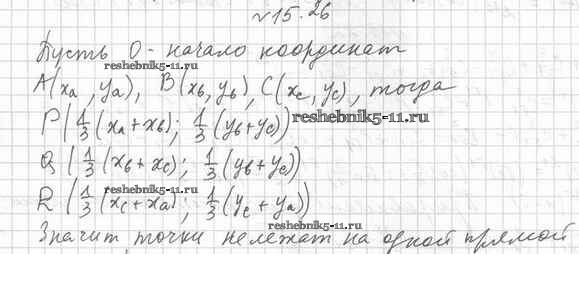 √15.26
Пусть O - начало координат
reshebnik5-11.ru
A(xa, ya), B(xb, yb), C(xc, yc), тогда
P(1/3(xa+xb); 1/3(yb+yc))
reshebnik5-11.ru
Q(1/3(xb+xc); 1/3(yb+yc))
reshebnik5-11.ru
R(1/3(xc+xa); 1/3(yc+ya))
reshebnik5-11.ru
Значит, точки не лежат на одной прямой